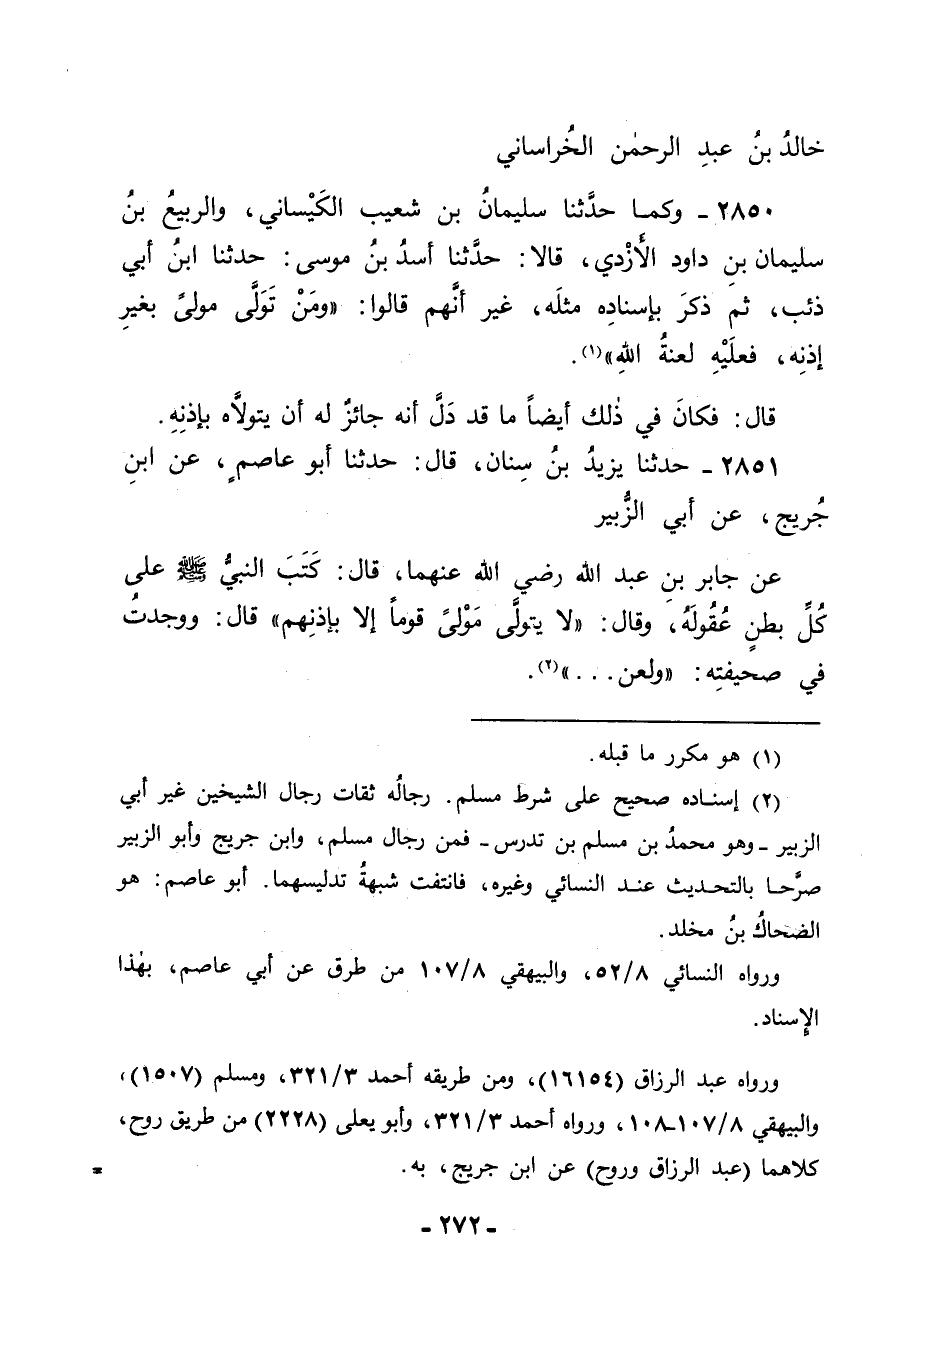 خالدُ بنُ عبدِ الرحمٰن الخُراساني
٢٨٥٠ ـ وكمـا حدَّثنا سليمانُ بن شعيب الكَيْساني، والربيعُ بنُ
سليمان بنِ داود الأَزْدي، قالا: حدَّثنا أسدُ بنُ موسى: حدثنا ابنُ أبي
ذئب، ثم ذكرَ بإسنادِه مثلَه، غير أنَّهم قالوا: «ومَنْ تَوَلَّى مولىً بغيرِ
إذنِه، فعلَيْهِ لعنةُ اللهِ»(١).
قال: فكانَ في ذٰلك أيضاً ما قد دَلَّ أنه جائزٌ له أن يتولاَّه بإذنِهِ.
٢٨٥١ ـ حدثنا يزيدُ بنُ سِنان، قال: حدثنا أبو عاصمٍ، عن ابنِ
جُريج، عن أبي الزُّبير
عن جابر بنِ عبد الله رضي الله عنهما، قال: كَتَبَ النبيُّ ﷺ على
كُلِّ بطنٍ عُقُولَهُ، وقال: «لا يتولَّى مَوْلىً قوماً إلا بإذنِهم» قال: ووجدتُ
في صحيفتِه: «ولعن...»(٢).
(١) هو مكرر ما قبله.
(٢) إسنـاده صحيح على شرط مسلم. رجالُه ثقات رجال الشيخين غير أبي
الزبير ـ وهو محمدُ بن مسلم بن تدرس ـ فمن رجال مسلم، وابن جريج وأبو الزبير
صرَّحـا بالتحـديث عنـد النسائي وغيره، فانتفت شبهةُ تدليسهما. أبو عاصم: هو
الضحاكُ بنُ مخلد.
ورواه النسائي ٥٢/٨، والبيهقي ١٠٧/٨ من طرق عن أبي عاصم، بهٰذا
الإسناد.
ورواه عبد الرزاق (١٦١٥٤)، ومن طريقه أحمد ٣٢١/٣، ومسلم (١٥٠٧)،
والبيهقي ١٠٧/٨-١٠٨، ورواه أحمد ٣٢١/٣، وأبو يعلى (٢٢٢٨) من طريق روح،
كلاهما (عبد الرزاق وروح) عن ابن جريج، به. =
ـ ٢٧٢ ـ